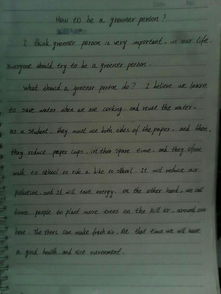 How to be a greener person?
I think greener person is very important in our life.
Everyone should try to be a greener person.
What should a greener person do? I believe we learn
to save water when we are cooking, and reuse the water.
As a student, they must use both sides of the paper. and then,
they reduce paper cups. in their spare time. and they often
walk to school or ride a bike to school. It will reduce air
pollution and it will save energy. On the other hand, we can
people to plant more trees on the hill or around our
here. The trees can make fresh air. At that time we will have
a good health and nice environment.